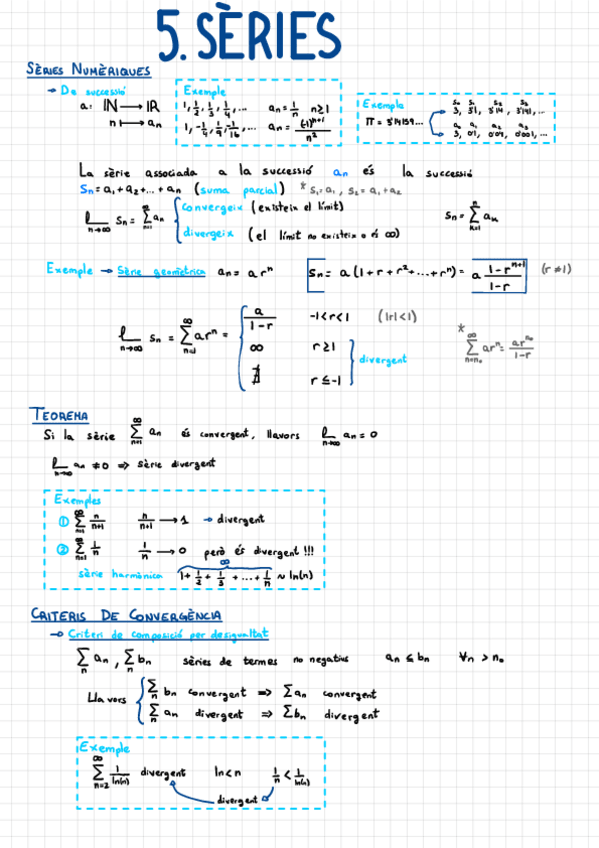 5. SÈRIES
SÈRIES NUMÈRIQUES
→ De successió
a: ℕ → ℝ
n ↦ aₙ
Exemple
1, 1/2, 1/3, 1/4, ... aₙ = 1/n n≥1
1, -1/4, 1/9, -1/16, ... aₙ = (-1)ⁿ⁺¹/n²
Exemple
π = 3'14159...
s₀ s₁ s₂ s₃
3, 3'1, 3'14, 3'141, ...
a₀ a₁ a₂ a₃
3, 0'1, 0'04, 0'001, ...
La sèrie associada a la successió aₙ és la successió
Sₙ = a₁ + a₂ + ... + aₙ (suma parcial) * S₁ = a₁, S₂ = a₁ + a₂
lim n→∞ Sₙ = ∑ n=1 aₙ { convergeix (existeix el límit)
divergeix (el límit no existeix o és ∞)
Sₙ = ∑ k=1 n aₖ
Exemple → Sèrie geomètrica aₙ = a rⁿ Sₙ = a (1 + r + r² + ... + rⁿ) = a (1 - rⁿ⁺¹)/(1 - r) (r ≠ 1)
lim n→∞ Sₙ = ∑ ∞ arⁿ = { a/(1-r) -1<r<1 (|r|<1)
∞ r≥1
∄ r≤-1 } divergent
* ∑ n=n₀ ∞ arⁿ = arⁿ⁰/(1-r)
TEOREMA
Si la sèrie ∑ n=1 ∞ aₙ és convergent, llavors lim n→∞ aₙ = 0
lim n→∞ aₙ ≠ 0 ⇒ sèrie divergent
Exemples
① ∑ n=1 ∞ n/(n+1) n/(n+1) → 1 → divergent
② ∑ n=1 ∞ 1/n 1/n → 0 però és divergent !!!
∞
sèrie harmònica 1 + 1/2 + 1/3 + ... + 1/n ~ ln(n)
CRITERIS DE CONVERGÈNCIA
→ Criteri de composició per desigualtat
∑ n aₙ, ∑ n bₙ sèries de termes no negatius aₙ ≤ bₙ ∀n > n₀
Llavors { ∑ n bₙ convergent ⇒ ∑ aₙ convergent
∑ n aₙ divergent ⇒ ∑ bₙ divergent
Exemple
∑ n=2 ∞ 1/ln(n) divergent ln < n 1/n < 1/ln(n)
divergent